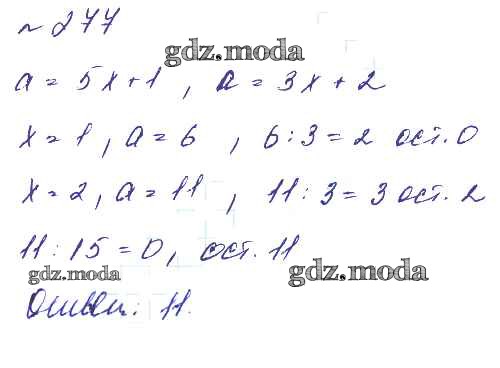 № 277
gdz.moda
a = 5x+1 , a = 3x + 2
x = 1, a = 6 , 6 : 3 = 2 ост. 0
x = 2, a = 11 , 11 : 3 = 3 ост. 2
11 : 15 = 0, ост. 11
gdz.moda gdz.moda
Ответ: 11.